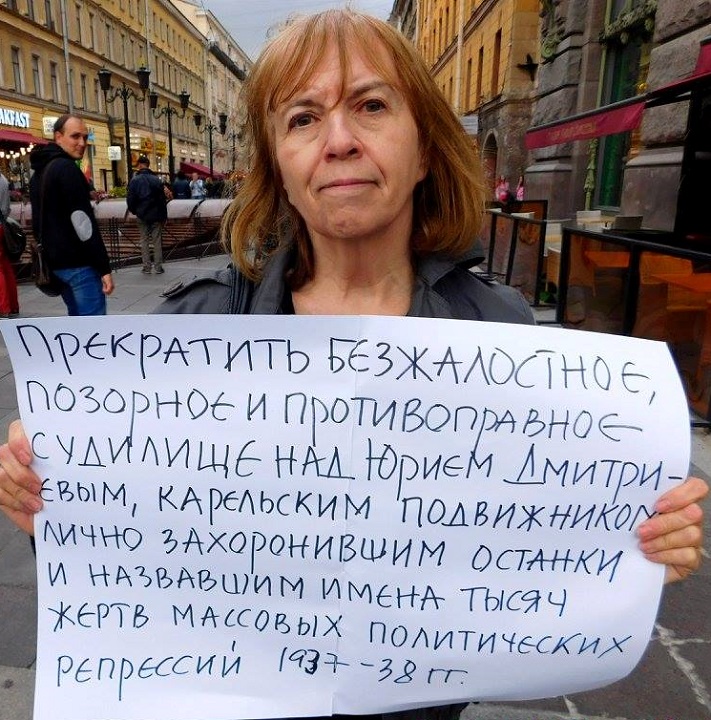 AKFAST
ПРЕКРАТИТЬ БЕЗЖАЛОСТНОЕ,
ПОЗОРНОЕ И ПРОТИВОПРАВНОЕ
СУДИЛИЩЕ НАД ЮРИЕМ ДМИТРИ-
ЕВЫМ, КАРЕЛЬСКИМ ПОДВИЖНИКОМ
ЛИЧНО ЗАХОРОНИВШИМ ОСТАНКИ
И НАЗВАВШИМ ИМЕНА ТЫСЯЧ
ЖЕРТВ МАССОВЫХ ПОЛИТИЧЕСКИХ
РЕПРЕССИЙ 1937-38 гг.